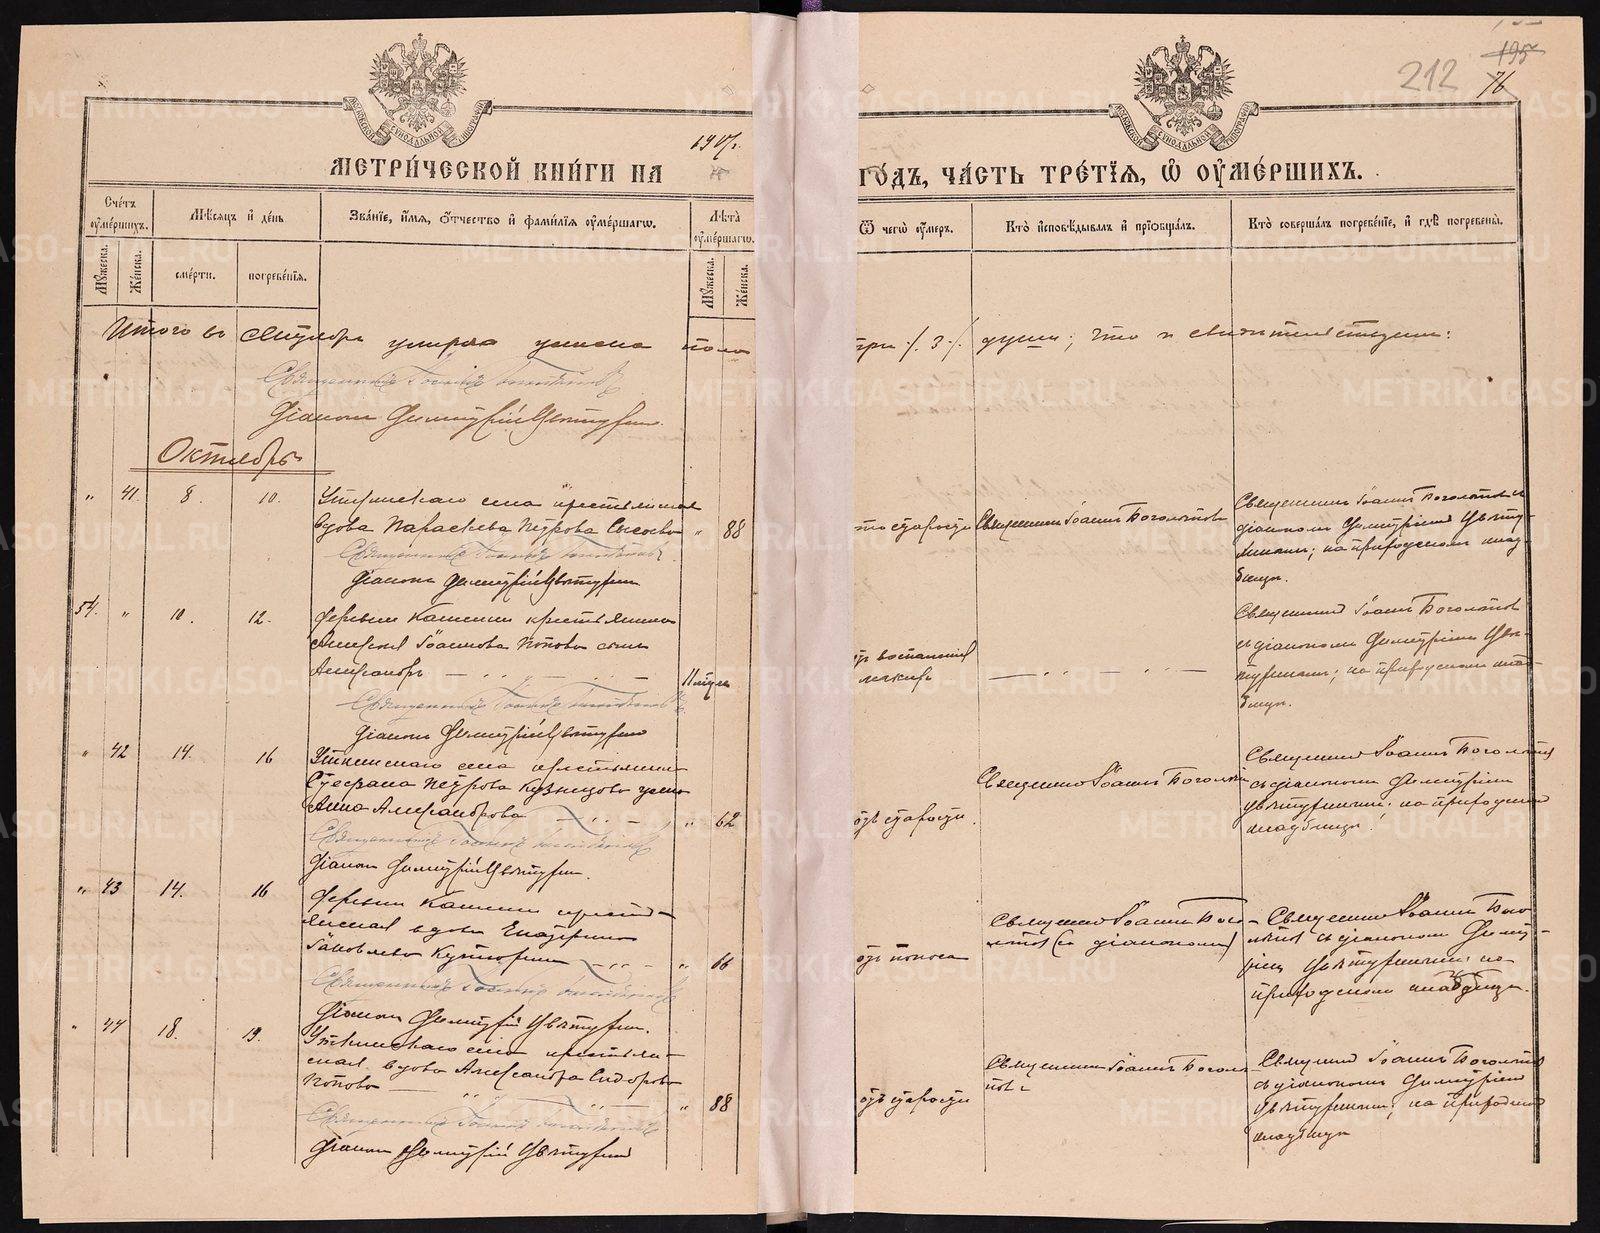 212
195
76
1907 г.
МЕТРИ́ЧЕСКОЙ КНИ́ГИ НА ГО́ДЪ, ЧА́СТЬ ТРЕ́ТІѦ, Ѡ ОУМЕ́РШИХЪ.
Сче́тъ оуме́ршихъ.
Мѣ́сяцъ и де́нь
Зва́ніе, и́мя, о́тчество и фами́лія оуме́ршагѡ.
Лѣ́та оуме́ршагѡ.
Ѿ чегѡ̀ оу́меръ.
Кто̀ исповѣ́дывалъ и пріѡбща́лъ.
Кто̀ соверша́лъ погребе́ніе, и гдѣ̀ погребены̀.
Му́жеска.
Же́нска.
сме́рти.
погребе́нія.
Му́жеска.
Же́нска.
Итого въ Октября умерло пола три /3/ души; что и свидѣтельствуемъ:
Священникъ Іоаннъ
Діаконъ Димитрій Цвѣтухин
Октябрь
" 41. 8. 10.
Уткинскаго села крестьянская
вдова Параскева Петрова Сысоева " 88
отъ старости Священникъ Іоаннъ Боголѣповъ
Священникъ Іоаннъ Боголѣповъ съ
діакономъ Димитріемъ Цвѣту-
хинымъ; на приходскомъ клад-
бищѣ.
Священникъ Іоаннъ
Діаконъ Димитрій Цвѣтухин
54. " 10. 12.
Деревни Каменки крестьянина
Алексѣя Іоаннова Попова сынъ
Александръ
отъ воспаленія
легкихъ
Священникъ Іоаннъ Боголѣповъ
съ діакономъ Димитріемъ Цвѣ-
тухинымъ; на приходскомъ клад-
бищѣ.
Священникъ Іоаннъ
Діаконъ Димитрій Цвѣтухин
" 42 14. 16
Уткинскаго села крестьянина
Стефана Петрова Кузнецова жена
Анна Александрова " 62
отъ старости.
Священникъ Іоаннъ Боголѣп
Священникъ Іоаннъ Боголѣповъ
съ діакономъ Димитріемъ
Цвѣтухинымъ; на приходскомъ
кладбищѣ.
Священникъ Іоаннъ
Діаконъ Димитрій Цвѣтухин.
" 43 14. 16
Деревни Каменки кресть-
янская вдова Екатерина
Іаковлева " 66
отъ поноса
Священникъ Іоаннъ Бого-
лѣповъ (съ діакономъ)
Священникъ Іоаннъ Бого-
лѣповъ съ діакономъ Димит-
ріемъ Цвѣтухинымъ; на
приходскомъ кладбищѣ.
Священникъ Іоаннъ
Діаконъ Димитрій Цвѣтухин.
" 44 18. 19.
Уткинскаго села крестьян-
ская вдова Александра Сидорова
Попова " 88
отъ старости
Священникъ Іоаннъ Боголѣ-
повъ
Священникъ Іоаннъ Боголѣповъ
съ діакономъ Димитріемъ
Цвѣтухинымъ; на приходскомъ
кладбищѣ
Священникъ Іоаннъ
Діаконъ Димитрій Цвѣтухин
METRIKI.GASO-URAL.RU